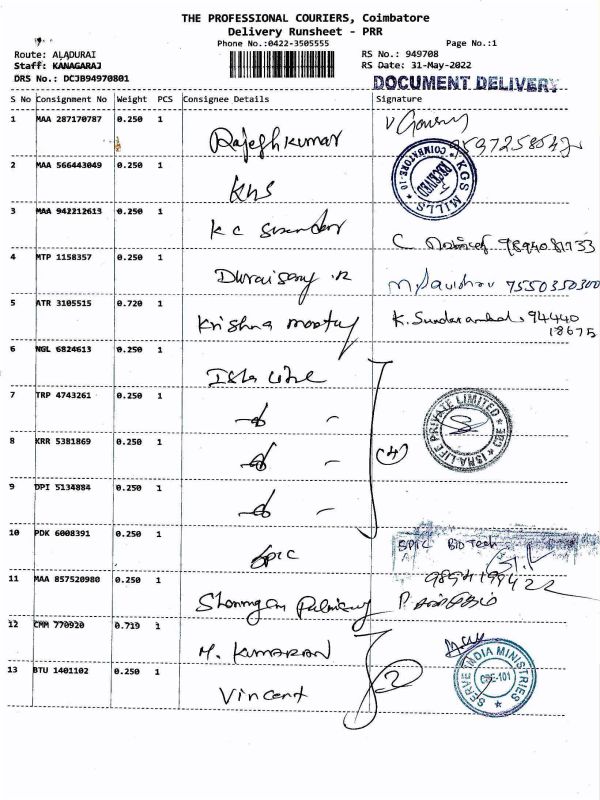 THE PROFESSIONAL COURIERS, Coimbatore
Delivery Runsheet - PRR
Phone No.:0422-3505555
Page No.:1
Route: ALADURAI
RS No.: 949708
Staff: KANAGARAJ
RS Date: 31-May-2022
DRS No.: DCJB94970801
DOCUMENT DELIVERY
S No Consignment No Weight PCS Consignee Details Signature
1 MAA 287170787 0.250 1 Rajeshkumar V Gowry
2 MAA 566443049 0.250 1 KGS KGS MILLS RECEIVED COIMBATORE-10
3 MAA 942212613 0.250 1 K C 9894081733
4 MTP 1158357 0.250 1 Duraisamy 7550350300
5 ATR 3105515 0.720 1 Krishna moorthy K. Sundarambal 94440
18675
6 NGL 6824613 0.250 1 Isha
7 TRP 4743261 0.250 1 ISHA LIFE PRIVATE LIMITED CBE
8 KRR 5381869 0.250 1 (4)
9 DPI 5134884 0.250 1
10 PDK 6008391 0.250 1 Spic SPIC BIOTECH
11 MAA 857520980 0.250 1
12 CMM 770920 0.719 1 M. KUMARAN
13 BTU 1401102 0.250 1 Vincent 2 SERVE INDIA MINISTRIES CBE-101